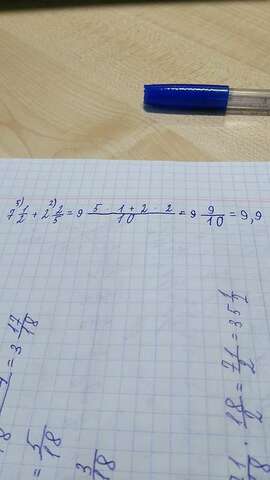 7 1/2 ⁵⁾ + 2 2/5 ²⁾ = 9 (5 · 1 + 2 · 2)/10 = 9 9/10 = 9,9
17/18
= 3
= 5/18
3/18
· 18/2 = 71/2 = 35 1/2